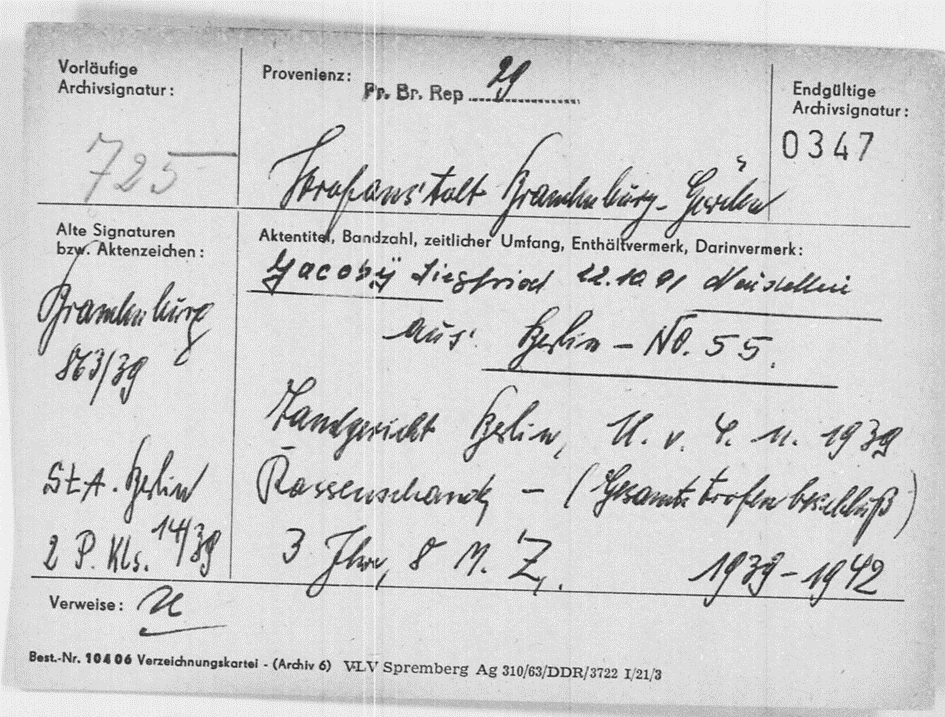 Vorläufige
Archivsignatur:
725
Provenienz:
Pr. Br. Rep 29
Strafanstalt Brandenburg-Görden
Endgültige
Archivsignatur:
0347
Alte Signaturen
bzw. Aktenzeichen:
Brandenburg
863/39
St.A. Berlin
2 P. Kls. 14/39
Aktentitel, Bandzahl, zeitlicher Umfang, Enthältvermerk, Darinvermerk:
Jacoby Siegfried 22.10.91 Neustettin
aus Berlin - NO. 55.
Landgericht Berlin, U. v. 4. 11. 1939
Rassenschande - (Gesamtstrafenbeschluß)
3 Jhre, 8 M. Z.
1939-1942
Verweise:
Best.-Nr. 10406 Verzeichnungskartei - (Archiv 6) VLV Spremberg Ag 310/63/DDR/3722 I/21/3